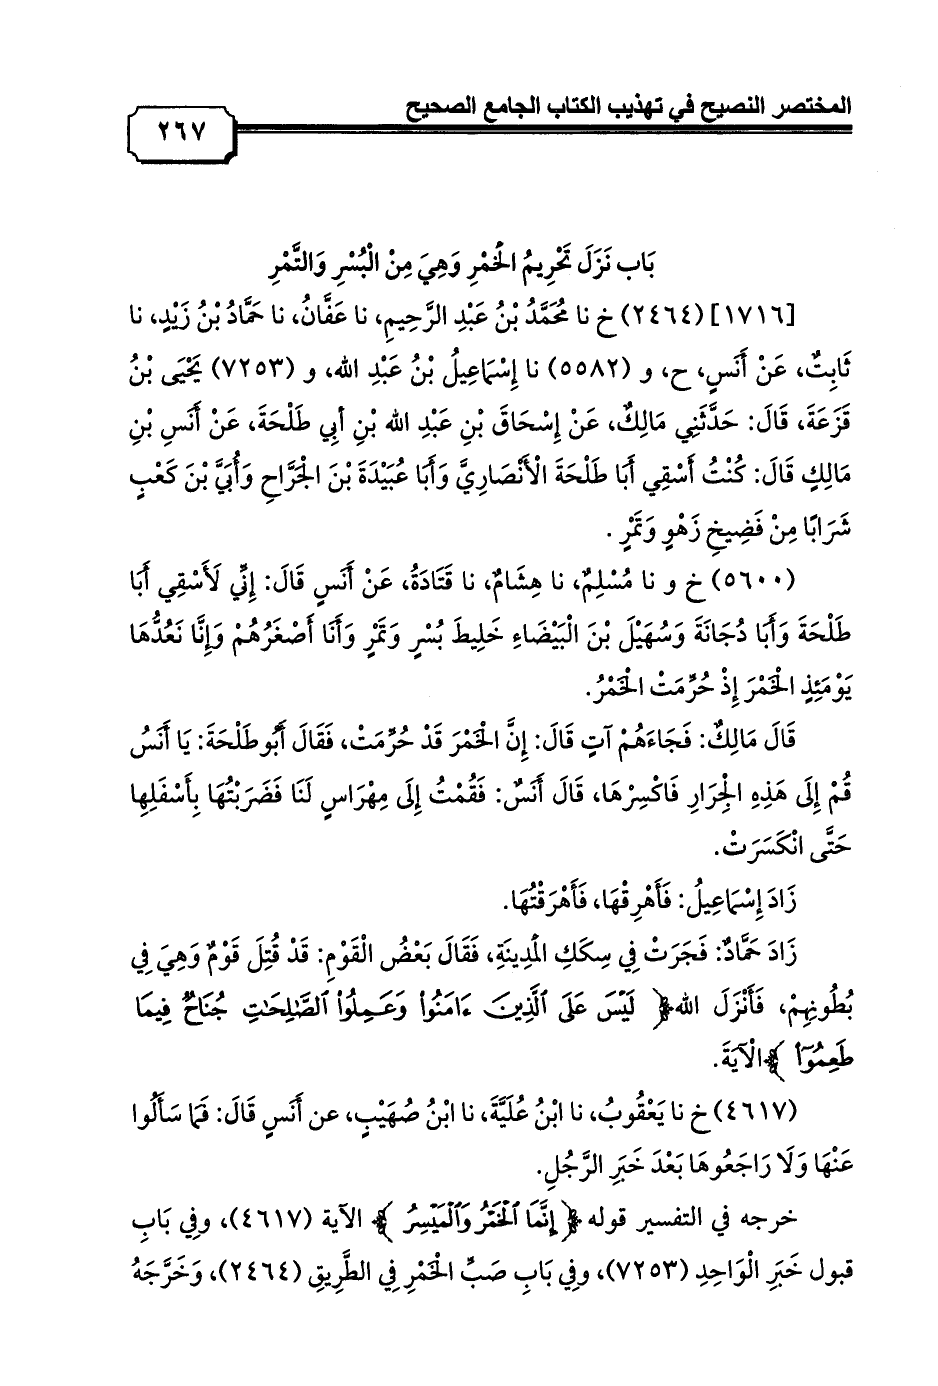 المختصر النصيح في تهذيب الكتاب الجامع الصحيح
٢٦٧
بَاب نَزَلَ تَحْرِيمُ الْخَمْرِ وَهِيَ مِنْ الْبُسْرِ وَالتَّمْرِ
[١٧١٦] (٢٤٦٤) خ نا مُحَمَّدُ بْنُ عَبْدِ الرَّحِيمِ، نا عَفَّانُ، نا حَمَّادُ بْنُ زَيْدٍ، نا
ثَابِتٌ، عَنْ أَنَسٍ، ح، و (٥٥٨٢) نا إِسْمَاعِيلُ بْنُ عَبْدِ الله، و (٧٢٥٣) يَحْيَى بْنُ
قَزَعَةَ، قَالَ: حَدَّثَنِي مَالِكٌ، عَنْ إِسْحَاقَ بْنِ عَبْدِ الله بْنِ أبِي طَلْحَةَ، عَنْ أَنَسِ بْنِ
مَالِكٍ قَالَ: كُنْتُ أَسْقِي أَبَا طَلْحَةَ الْأَنْصَارِيَّ وَأَبَا عُبَيْدَةَ بْنَ الْجَرَّاحِ وَأُبَيَّ بْنَ كَعْبٍ
شَرَابًا مِنْ فَضِيخِ زَهْوٍ وَتَمْرٍ .
(٥٦٠٠) خ و نا مُسْلِمٌ، نا هِشَامٌ، نا قَتَادَةُ، عَنْ أَنَسٍ قَالَ: إِنِّي لَأَسْقِي أَبَا
طَلْحَةَ وَأَبَا دُجَانَةَ وَسُهَيْلَ بْنَ الْبَيْضَاءِ خَلِيطَ بُسْرٍ وَتَمْرٍ وَأَنَا أَصْغَرُهُمْ وَإِنَّا نَعُدُّهَا
يَوْمَئِذٍ الْخَمْرَ إِذْ حُرِّمَتْ الْخَمْرُ.
قَالَ مَالِكٌ: فَجَاءَهُمْ آتٍ قَالَ: إِنَّ الْخَمْرَ قَدْ حُرِّمَتْ، فَقَالَ أَبُو طَلْحَةَ: يَا أَنَسُ
قُمْ إِلَى هَذِهِ الْجِرَارِ فَاكْسِرْهَا، قَالَ أَنَسٌ: فَقُمْتُ إِلَى مِهْرَاسٍ لَنَا فَضَرَبْتُهَا بِأَسْفَلِهَا
حَتَّى انْكَسَرَتْ.
زَادَ إِسْمَاعِيلُ: فَأَهْرِقْهَا، فَأَهْرَقْتُهَا.
زَادَ حَمَّادٌ: فَجَرَتْ فِي سِكَكِ الْمَدِينَةِ، فَقَالَ بَعْضُ الْقَوْمِ: قَدْ قُتِلَ قَوْمٌ وَهِيَ فِي
بُطُونِهِمْ، فَأَنْزَلَ الله ﴿ لَيْسَ عَلَى ٱلَّذِينَ ءَامَنُوا۟ وَعَمِلُوا۟ ٱلصَّٰلِحَٰتِ جُنَاحٌ فِيمَا
طَعِمُوٓا۟ ﴾ الْآيَةَ.
(٤٦١٧) خ نا يَعْقُوبُ، نا ابْنُ عُلَيَّةَ، نا ابْنُ صُهَيْبٍ، عن أَنَسٍ قَالَ: فَمَا سَأَلُوا
عَنْهَا وَلَا رَاجَعُوهَا بَعْدَ خَبَرِ الرَّجُلِ.
خرجه في التفسير قوله ﴿ إِنَّمَا ٱلْخَمْرُ وَٱلْمَيْسِرُ ﴾ الآية (٤٦١٧)، وفِي بَابِ
قبول خَبَرِ الْوَاحِدِ (٧٢٥٣)، وفِي بَابِ صَبِّ الْخَمْرِ فِي الطَّرِيقِ (٢٤٦٤)، وَخَرَّجَهُ